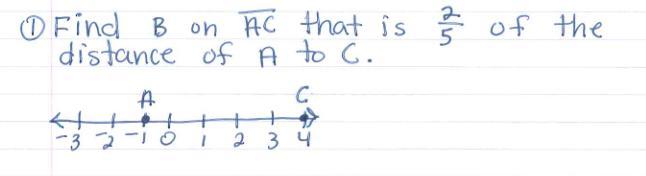 ① Find B on A̅C̅ that is 2/5 of the
distance of A to C.
A C
-3 -2 -1 0 1 2 3 4